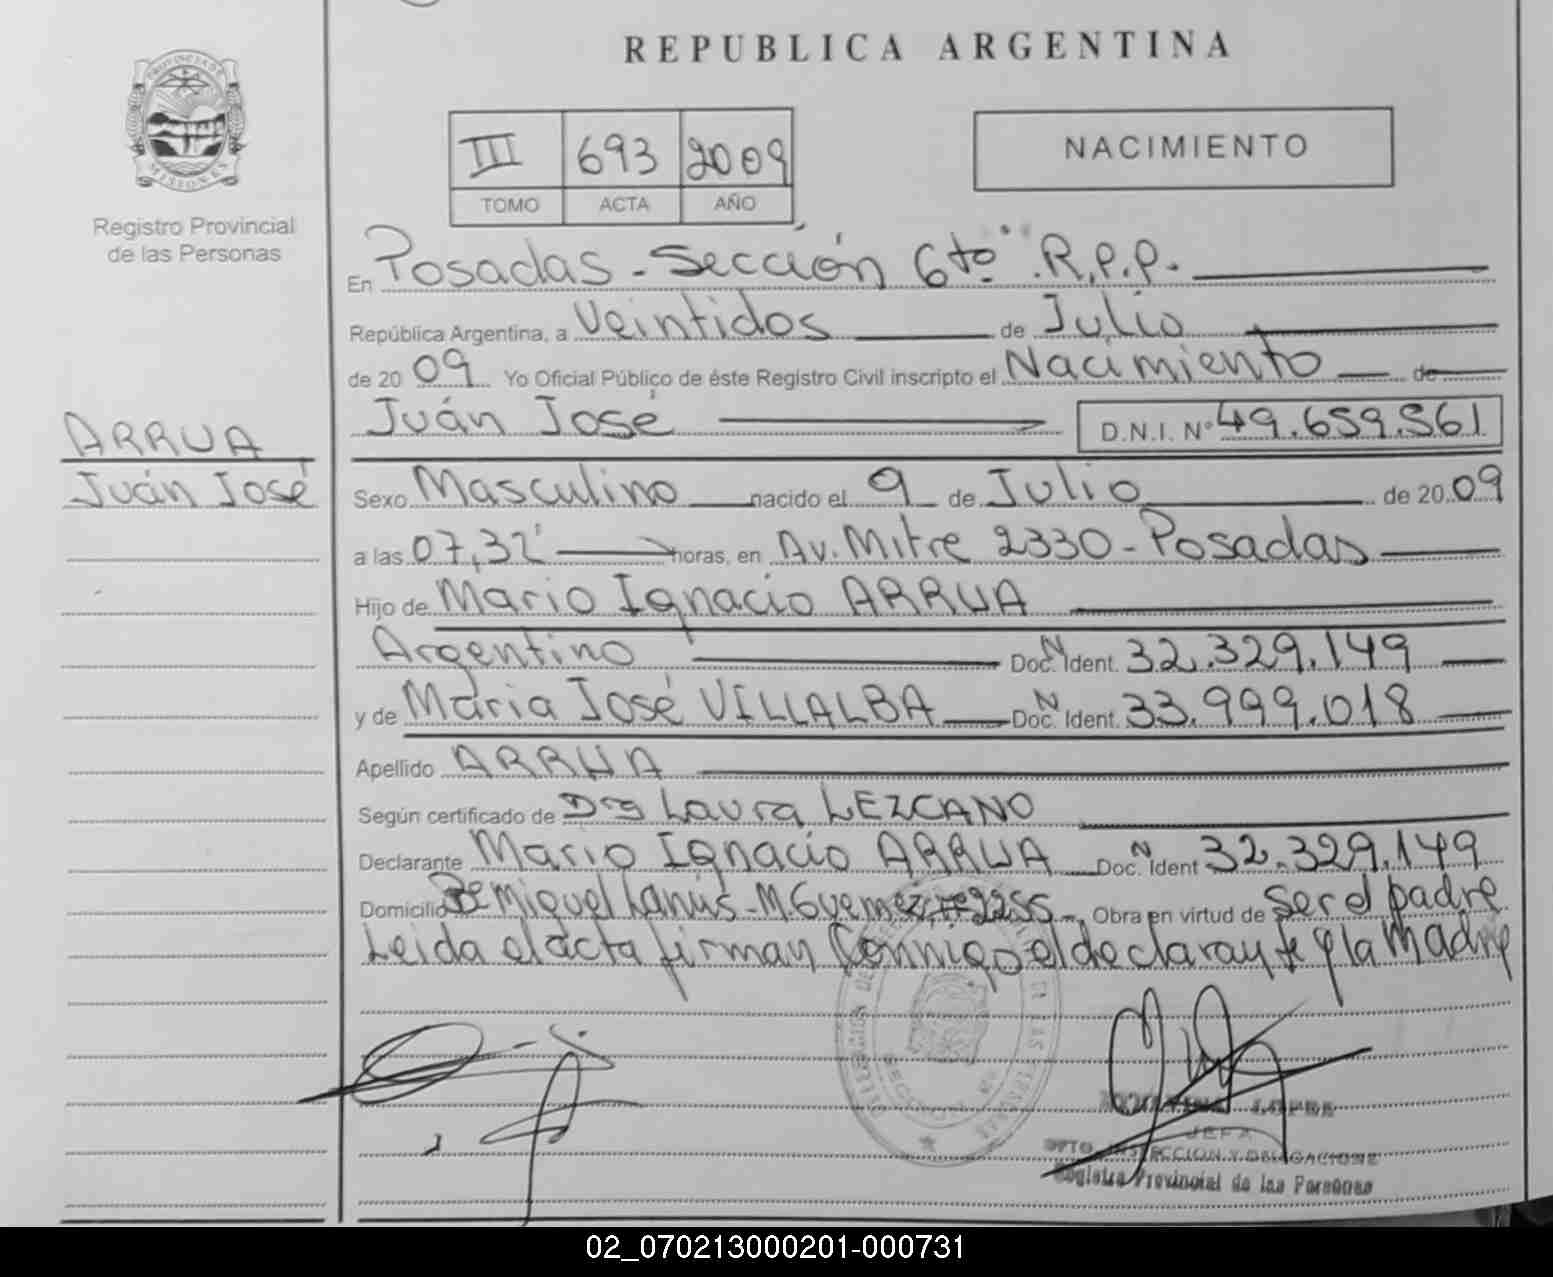 REPUBLICA ARGENTINA
PROVINCIA DE
MISIONES
Registro Provincial
de las Personas
III 693 2009
TOMO ACTA AÑO
NACIMIENTO
En Posadas - Sección 6to R.P.P.
República Argentina, a Veintidos de Julio
de 2009 Yo Oficial Público de éste Registro Civil inscripto el Nacimiento de
Juán José D.N.I. Nº 49.659.561
ARRUA
Juán José
Sexo Masculino nacido el 9 de Julio de 2009
a las 07,32' horas, en Av. Mitre 2330 - Posadas
Hijo de Mario Ignacio ARRUA
Argentino Doc. N Ident. 32.329.149
y de María José VILLALBA Doc. N Ident. 33.999.018
Apellido ARRUA
Según certificado de Dra Laura LEZCANO
Declarante Mario Ignacio ARRUA Doc. N Ident 32.329.149
Domicilio Bº Miguel Lanús - M. Guemez 2255 - Obra en virtud de ser el padre
Leida el acta firman Conmigo el declarante y la Madre
LOPEZ
JEFA
DPTO. INSPECCION Y DELEGACIONES
Registro Provincial de las Personas
02_070213000201-000731